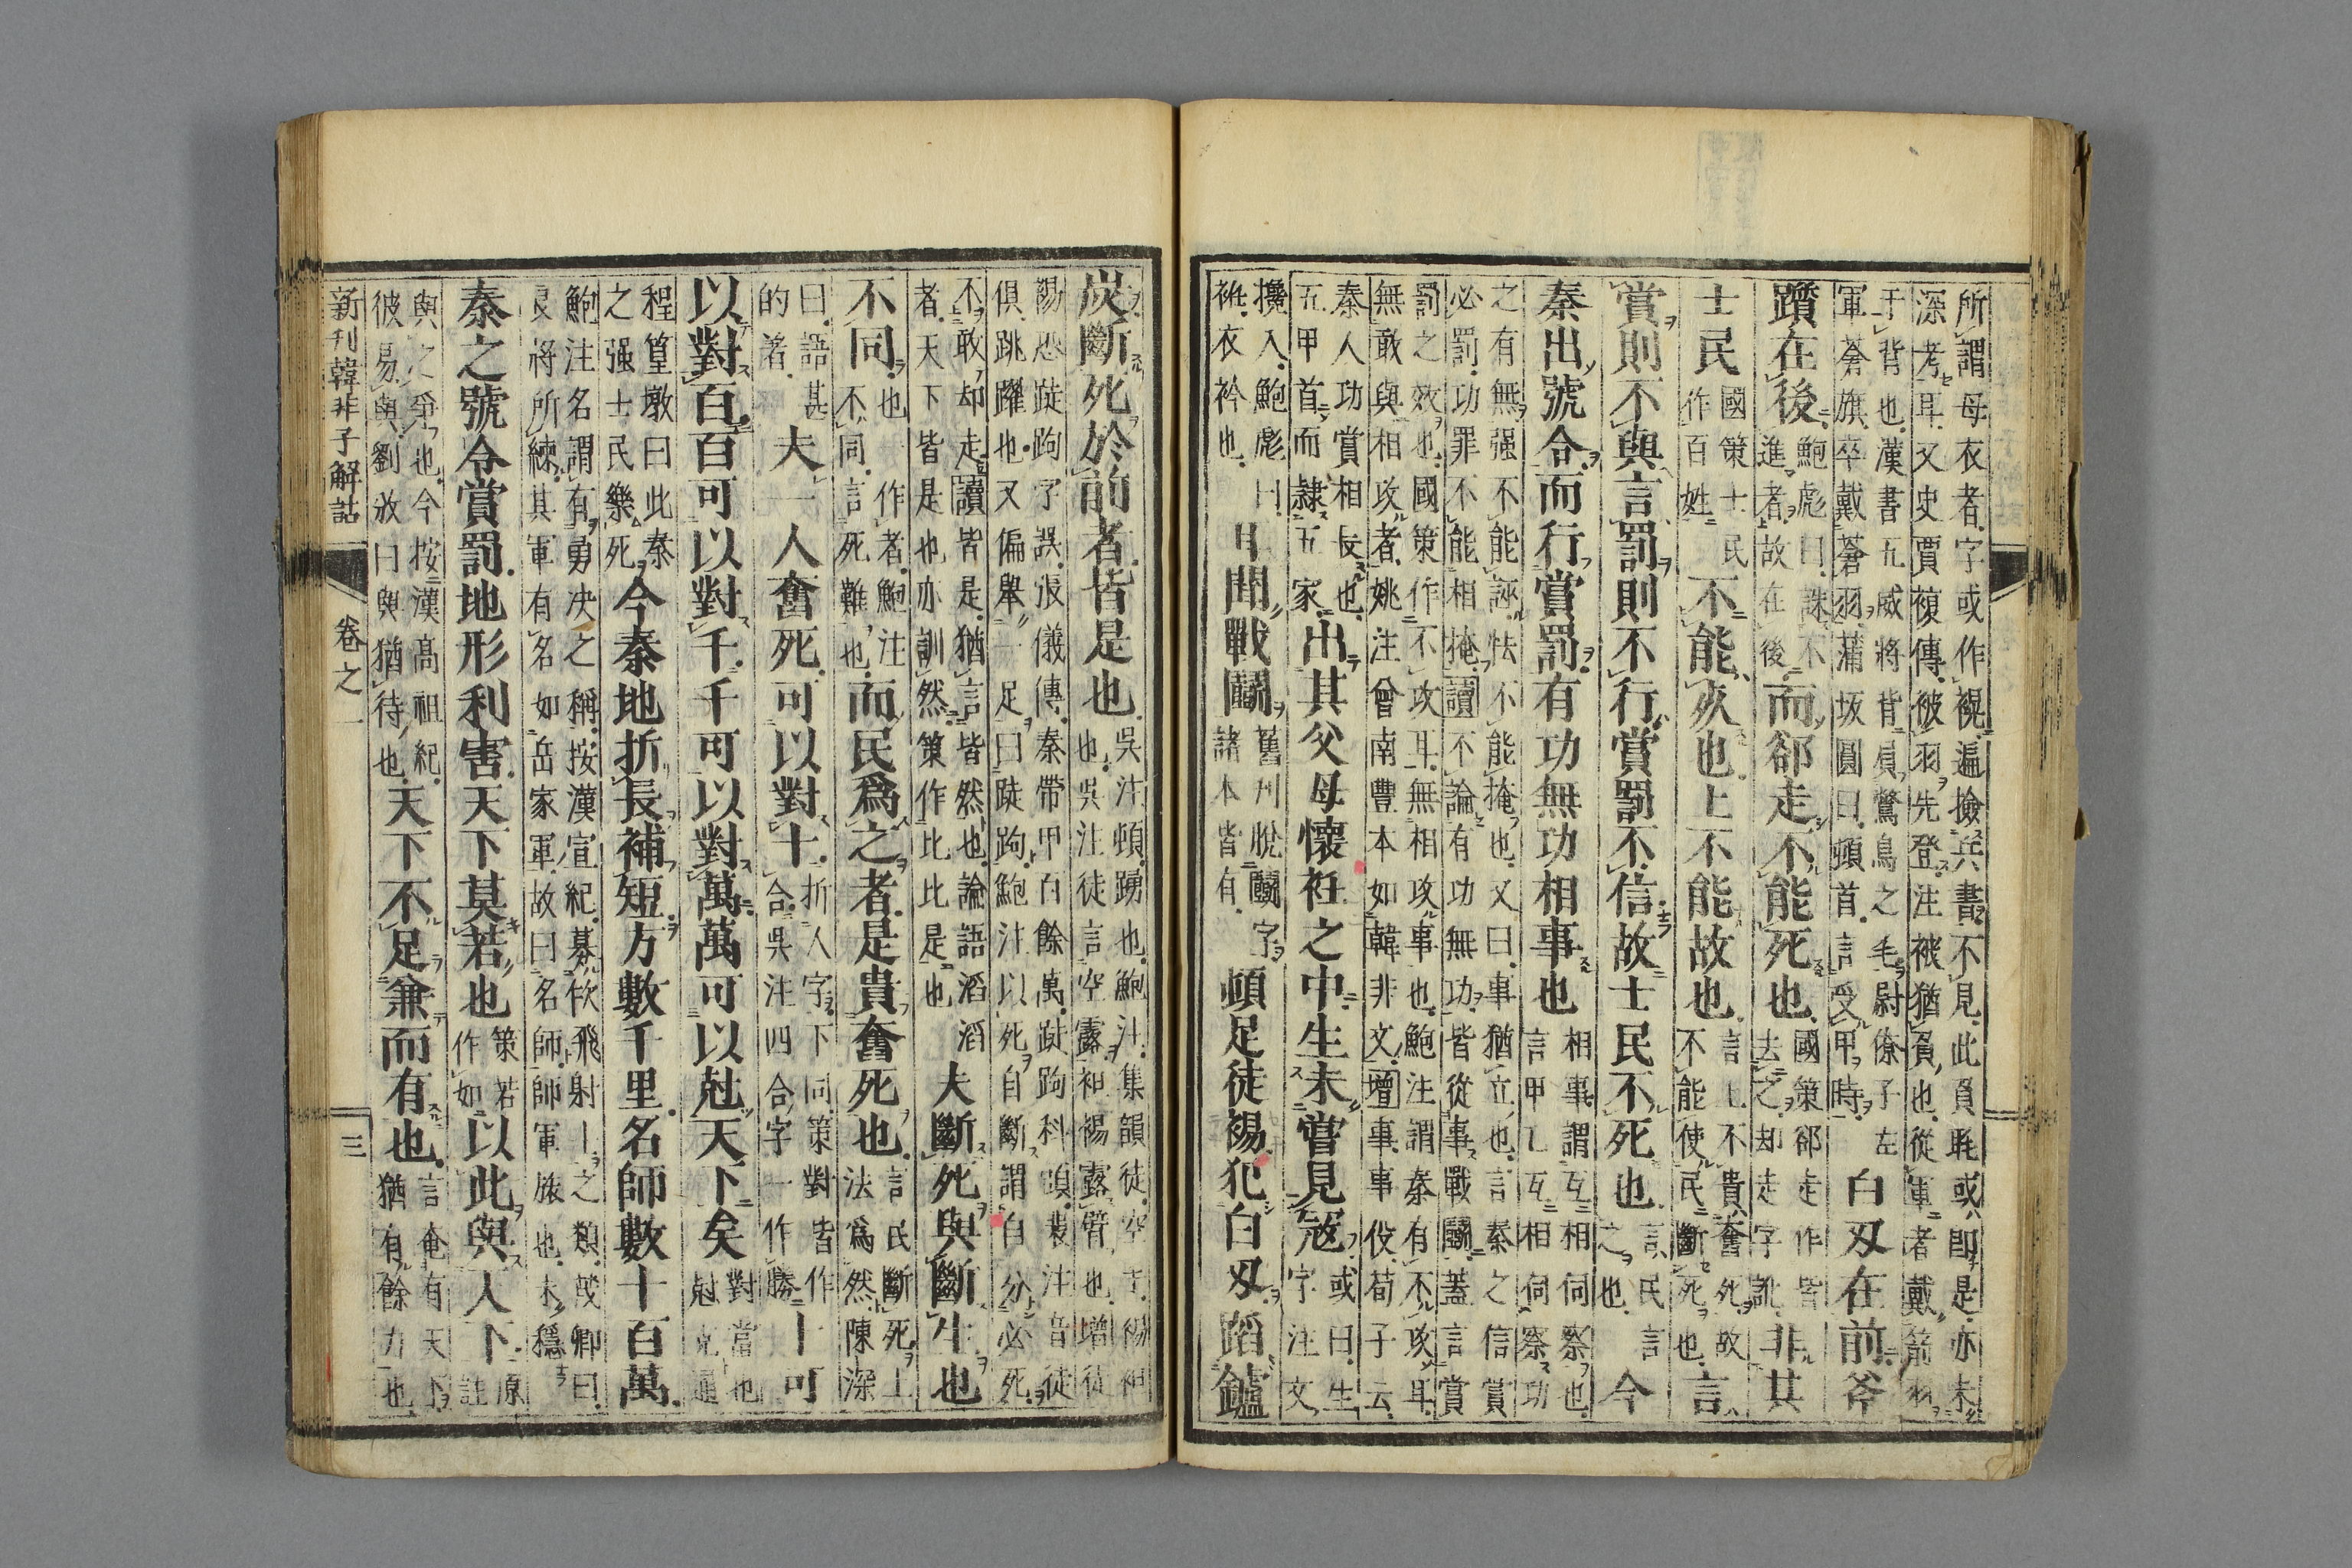 所謂母衣者字或作褪遍撿兵書不見此負毦或卽是亦未
深考耳又史賈複傳被羽先登注被猶負也從軍者戴
于背也漢書五威將背負鷩鳥之毛尉僚子左
軍蒼旗卒戴蒼羽蒲坂圓曰頓首言受甲時
白刄在前斧
躓在後
鮑彪曰誅不
進者故在後
而郤走不能死也
國策郤走作皆
去之却走字訛
非其
士民
國策士民
作百姓
不能死也上不能故也
言上不貴奮死故
不能使民斷死也
言
賞則不與言罰則不行賞罰不信故士民不死也
言民言
之也
今
秦出號令而行賞罰有功無功相事也
相事謂互相伺察也
言甲乙互相伺察功
之有無强不能誣怯不能掩也又曰事猶立也言秦之信賞
必罰功罪不能相掩讀不論有功無功皆從事戰鬪蓋言賞
罰之效也國策作不攻耳無相攻事也鮑注謂秦有不攻耳
無敢與相攻者姚注曾南豐本如韓非文增事事伇荀子云
秦人功賞相長也
五甲首而隷五家
出其父母懷衽之中生未嘗見寇
或曰生
字注文
攙入鮑彪曰
袵衣衿也
耳聞戰鬪
舊刋脫鬪字
諸本皆有
頓足徒裼犯白刄蹈鑪
炭斷死於前者皆是也
吳注頓踴也鮑注集韻徒空
也吳注徒言空露袒裼露臂也增徒
裼恐跿跔字誤張儀傳秦帶甲百餘萬跿跔科頭裴注音徒
俱跳躍也又偏舉一足曰跿跔鮑注以死自斷謂自分必死
不敢却走讀皆是猶言皆然也論語滔滔
者天下皆是也亦訓然策作比比是也
夫斷死與斷生也
不同
也作者鮑注
不同言死難也
而民爲之者是貴奮死也
言民斷死上
法爲然陳深
曰語甚
的著
夫一人奮死可以對十
折人字下同策對皆作
合吳注四合字一作勝
十可
以對百百可以對千千可以對萬萬可以尅天下矣
對當也
尅
程篁墩曰此秦
之强士民樂死
今秦地折長補短方數千里名師數十百萬
鮑注名謂有勇决之稱按漢宣紀募佽飛射士之類茂卿曰
良將所練其軍有名如岳家軍故曰名師師軍旅也未穩
秦之號令賞罰地形利害天下莫若也
策若
作如
以此與人下
原
註
與之爭也今按漢高祖紀
彼易與劉攽曰與猶待也
天下不足兼而有也
言奄有天下
猶有餘力也
新刊韓非子解詁
卷之一
三